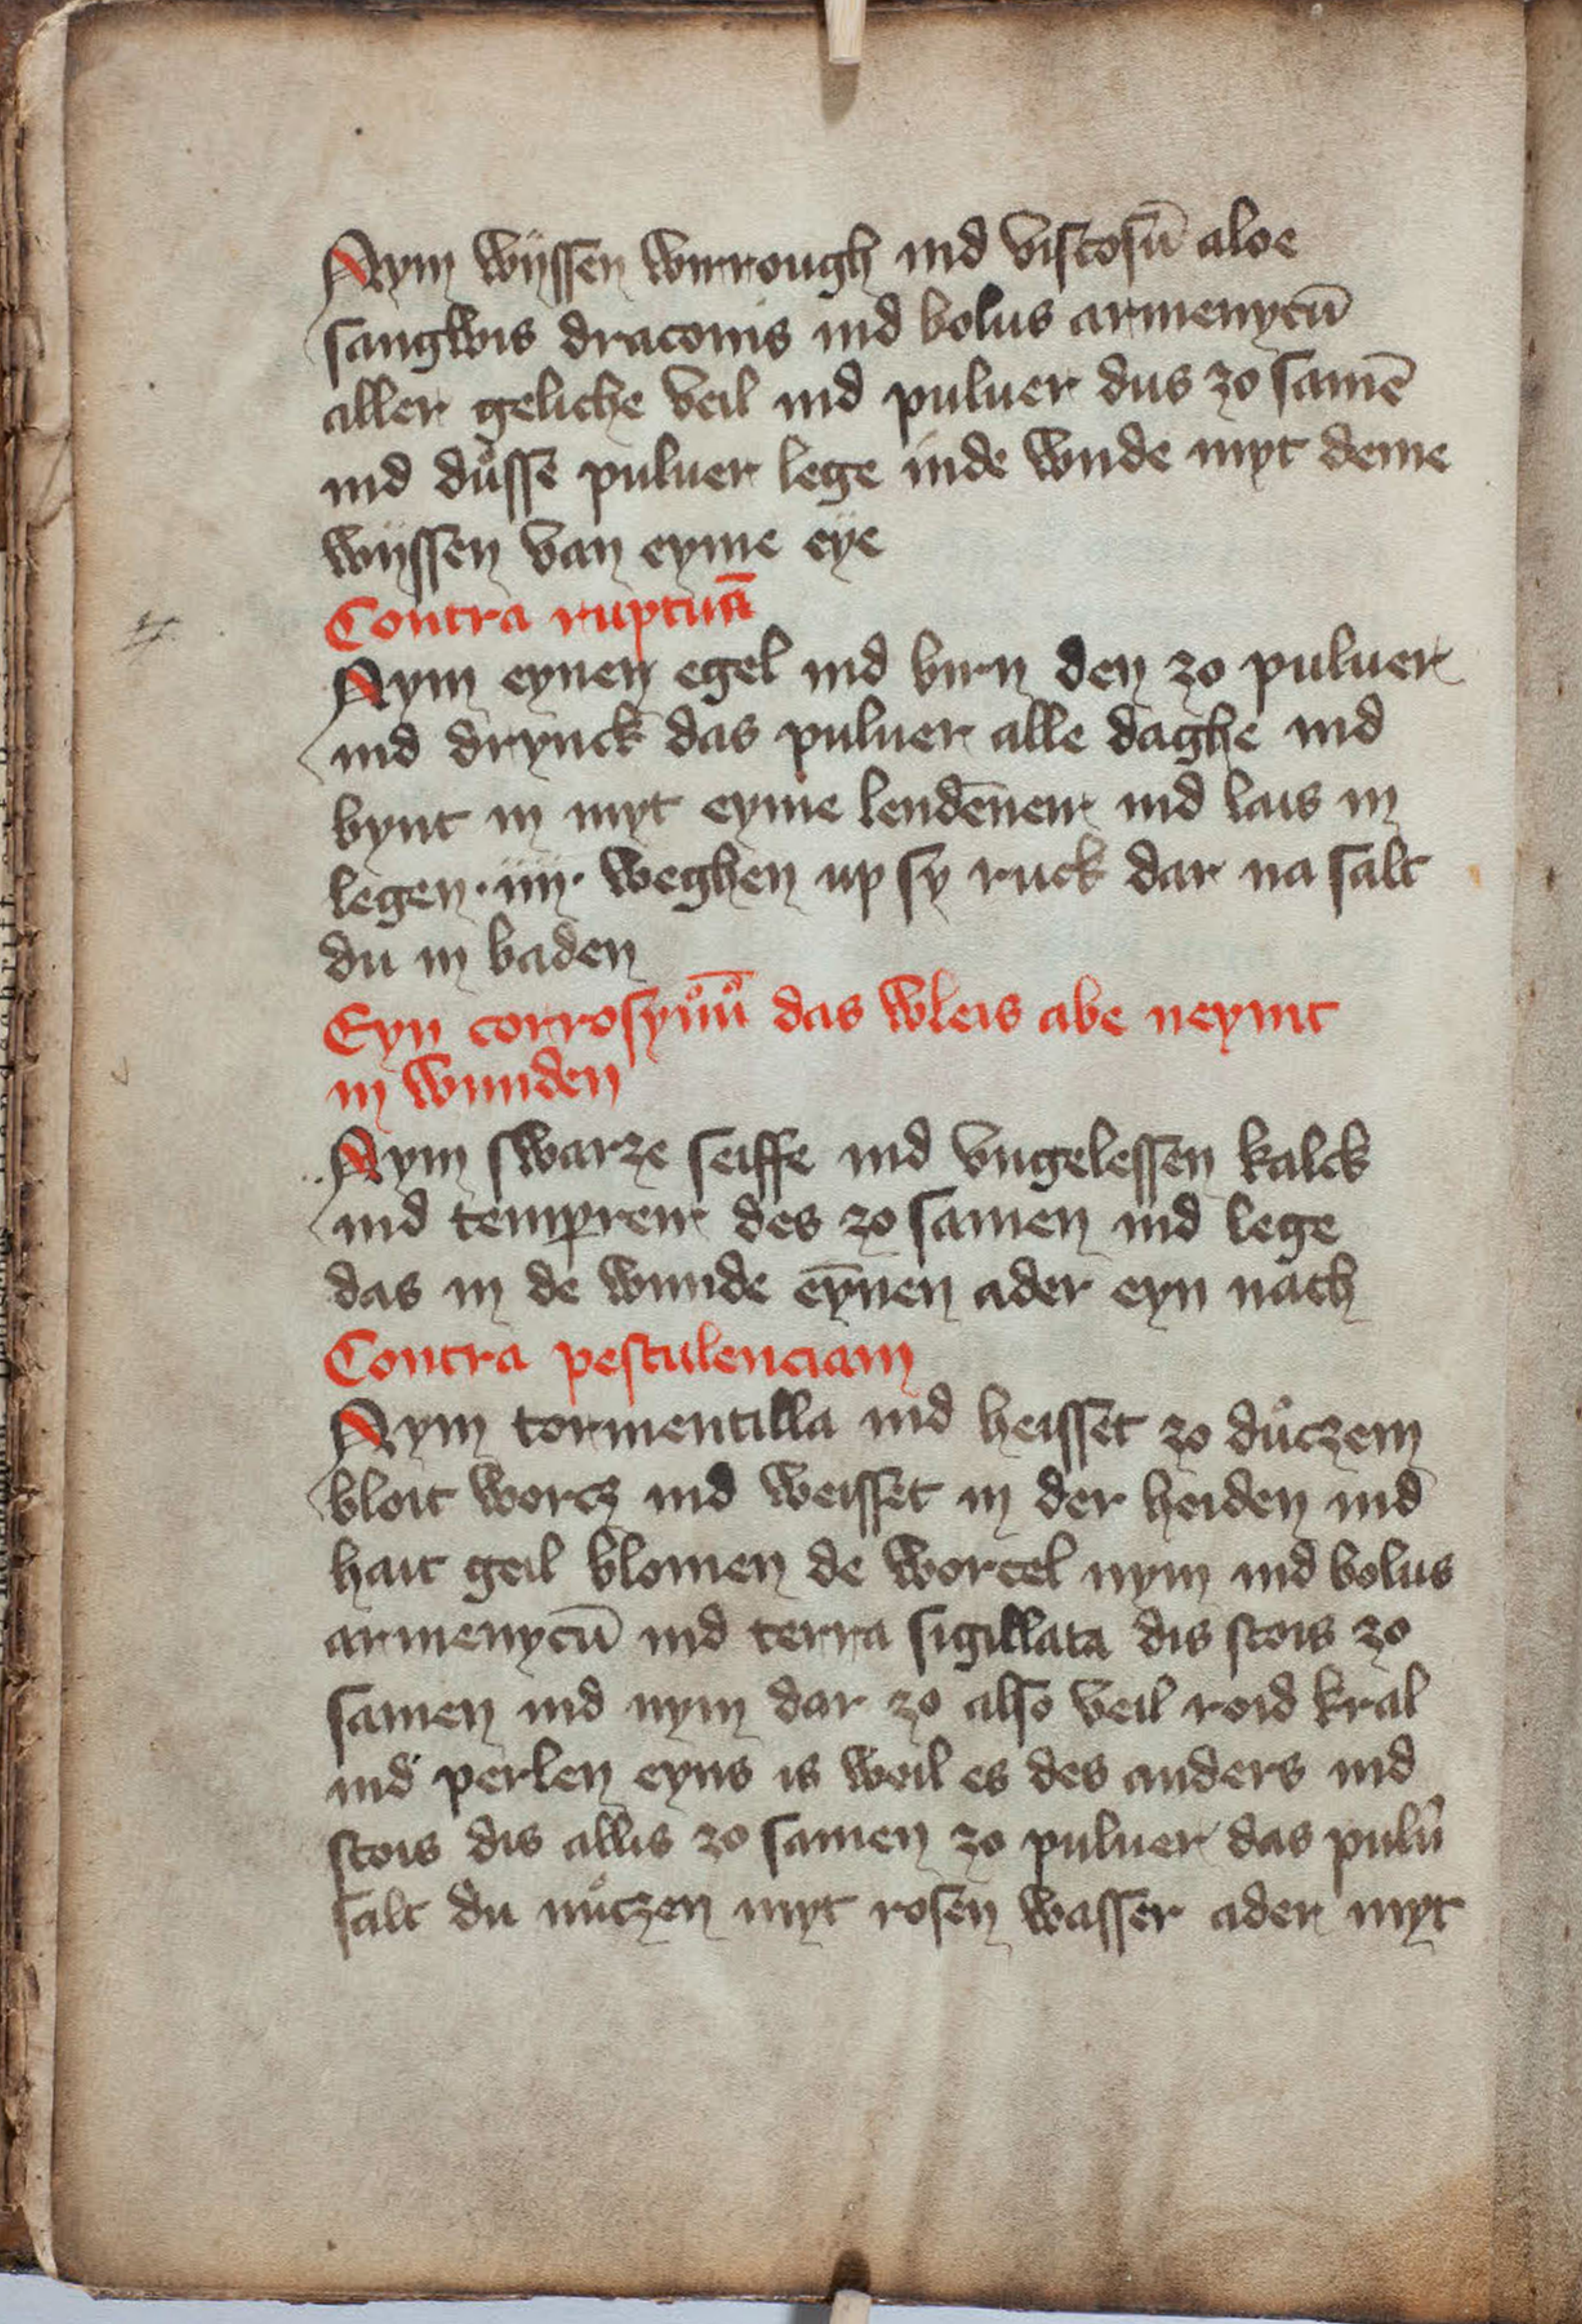 Nym wijssen wirrough ind viscosū aloe
sangwis draconis ind bolus armenycū
aller geliche veil ind puluer dus zo samē
ind důsse puluer lege inde wnde myt deme
wijssen van eyme eÿe
Contra ruptuā
Nym eynen egel ind birn den zo puluer
ind drynck das puluer alle daghe ind
bynt in myt eyme lendēner ind lais in
legen · iiij · weghen up sy ruck dar na salt
du in baden
Eyn corrosyůů das wleis abe neymt
in wunden
Nym swarze seiffe ind vngelessen kalck
ind temprer des zo samen ind lege
das in de wunde eȳnen ader eyn nach
Contra pestilenciam
Nym tormentilla ind heisset zo důczem
bloit worcz ind weisset in der heiden ind
hait geil blomen de wortel nym ind bolus
armenycū ind terra sigillata dis stois zo
samen ind nym dar zo also veil roid kral
ind perlen eyns is weil es des anders ind
stois dis allis zo samen zo puluer das pulū
salt du nůczen myt rosen wasser ader myt